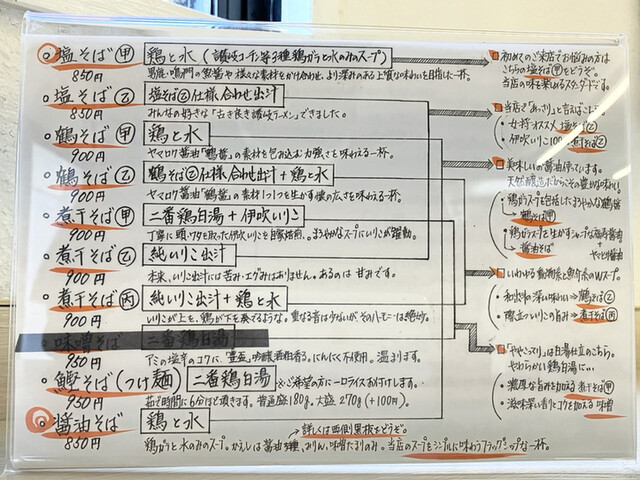 塩そば(甲) 鶏と水(讃岐コーチン等3種鶏ガラと水のみスープ)
850円
男鹿・鳴門の魚醤や様々な素材をかけ合わせ、より深みのある上質な味わいを目指した一杯。
塩そば(乙) 塩そば(乙)仕様合わせ出汁
850円
みんなの好きな「古き良き讃岐ラーメン」できました。
鶴そば(甲) 鶏と水
900円
ヤマロク醤油「鶴醤」の素材を包み込む力強さを味わえる一杯。
鶴そば(乙) 鶴そば(乙)仕様合わせ出汁+鶏と水
900円
ヤマロク醤油「鶴醤」の素材1つ1つを生かす懐の広さを味わえる一杯。
煮干そば(甲) 二番鶏白湯+伊吹いりこ
900円
丁寧に頭・ワタを取った伊吹いりこを自家焙煎。まろやかなスープにいりこが躍動。
煮干そば(乙) 純いりこ出汁
900円
本来、いりこ出汁には苦み・エグみはありません。あるのは甘みです。
煮干そば(丙) 純いりこ出汁+鶏と水
900円
いりこが上を、鶏が下を奏でるような。重なる音は少ないがそのハーモニーは絶妙。
味噌そば 二番鶏白湯
950円
にんにく不使用。温まります。
鰹そば(つけ麺) 二番鶏白湯 ※ご希望の方に一口ライスお付けします。
950円
茹で時間に6分ほど頂きます。普通盛180g、大盛270g(+100円)
醤油そば 鶏と水
850円
詳しくは西側黒板をどうぞ。
鶏ガラと水のみのスープ。かえしは醤油3種、みりん、味噌たまりのみ。当店のスープをシンプルに味わうフラッグシップな一杯。
初めてのご来店でお悩みの方は
こちらの塩そば(甲)をどうぞ。
当店の味を楽しめるスタンダードです。
当店で「あっさり」と言えばこちら。
・女将オススメ 塩そば(乙)
・伊吹いりこ100% 煮干そば(乙)
美味しいの醤油で
天然醸造だからこその豊かな味わい。
・鶏ガラスープを包括したまろやかな鶴醤
鶴そば(甲)
・鶏ガラスープを生かすシャープな
+
ヤマヒ醤油
醤油そば
いわゆる動物系と魚介系のWスープ。
・和出汁の深い味わい⇒鶴そば(乙)
・際立ついりこの旨み⇒煮干そば(丙)
「ややこってり」は白湯仕立のこちら。
やわらかい鶏白湯に…
・濃厚な旨みを加える 煮干そば(甲)
・滋味深い香りとコクを加える 味噌